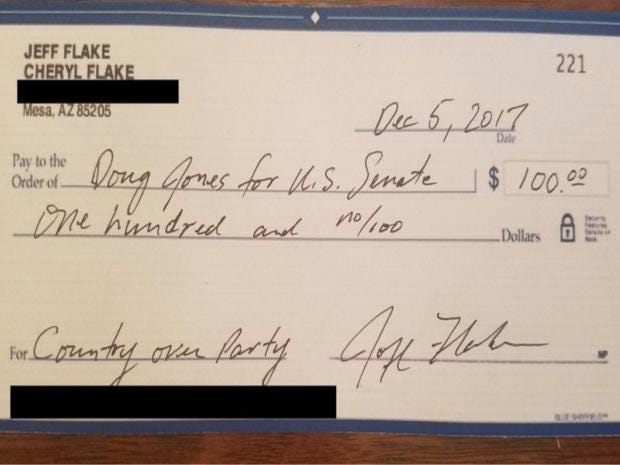 JEFF FLAKE
CHERYL FLAKE
221
Mesa, AZ 85205
Dec 5, 2017
Date
Pay to the
Order of Doug Jones for U.S. Senate $ 100.00
One hundred and no/100 Dollars
Security
Features
Details on
Back
For Country over Party Jeff Flake MP